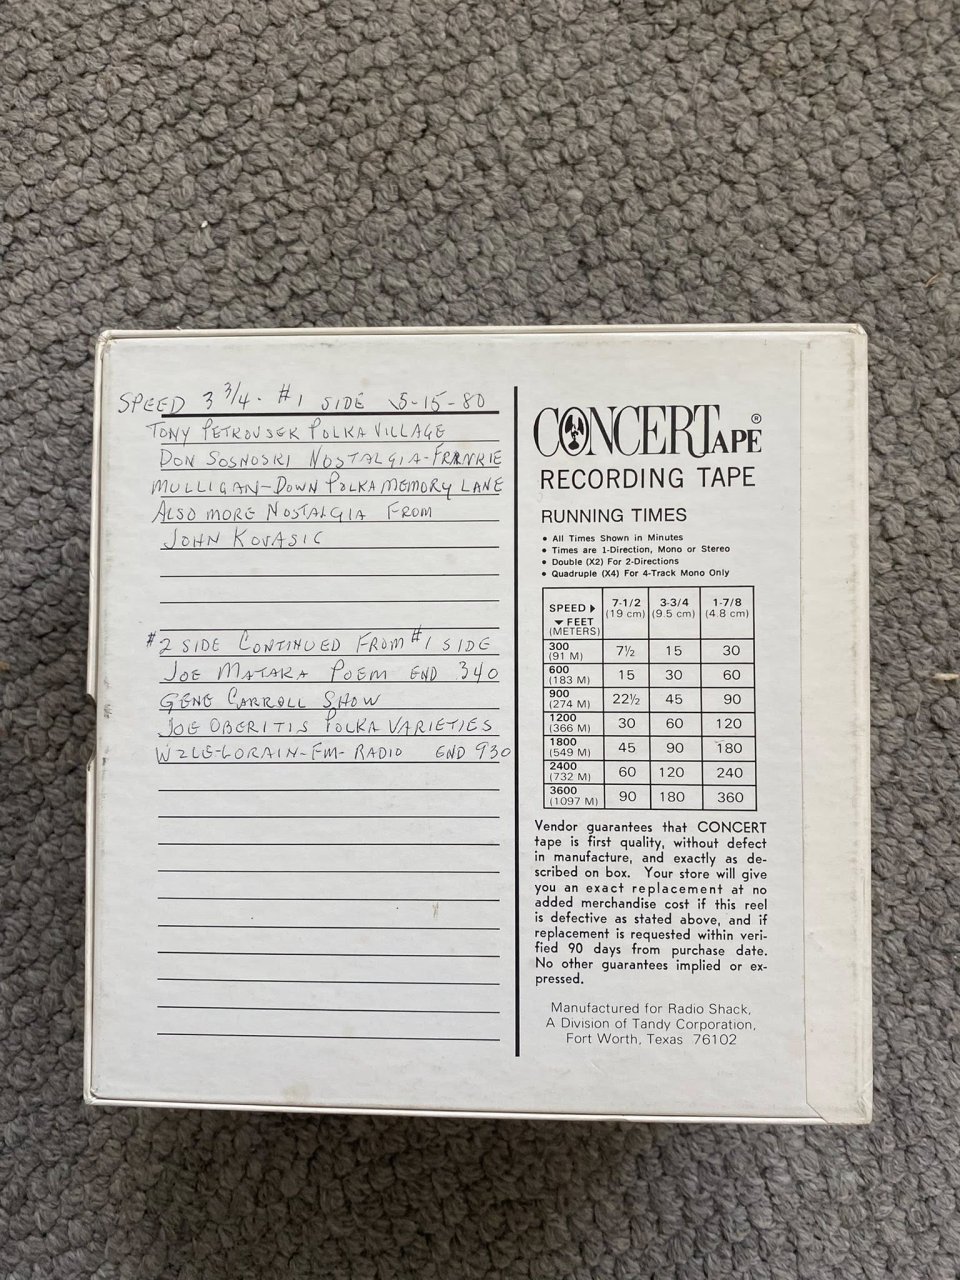 SPEED 3 3/4 - #1 SIDE 5-15-80
TONY PETROUSEK POLKA VILLAGE
DON SOSNOSKI NOSTALGIA-FRANKIE
MULLIGAN-DOWN POLKA MEMORY LANE
ALSO MORE NOSTALGIA FROM
JOHN KOVASIC
#2 SIDE CONTINUED FROM #1 SIDE
JOE MATAKA POEM END 340
GENE CARROLL SHOW
JOE OBERITIS POLKA VARIETIES
WZLE-LORAIN-FM-RADIO END 930
CONCERTAPE®
RECORDING TAPE
RUNNING TIMES
• All Times Shown in Minutes
• Times are 1-Direction, Mono or Stereo
• Double (X2) For 2-Directions
• Quadruple (X4) For 4-Track Mono Only
SPEED ▶ 7-1/2 3-3/4 1-7/8
▼ FEET (19 cm) (9.5 cm) (4.8 cm)
(METERS)
300 7½ 15 30
(91 M)
600 15 30 60
(183 M)
900 22½ 45 90
(274 M)
1200 30 60 120
(366 M)
1800 45 90 180
(549 M)
2400 60 120 240
(732 M)
3600 90 180 360
(1097 M)
Vendor guarantees that CONCERT
tape is first quality, without defect
in manufacture, and exactly as de-
scribed on box. Your store will give
you an exact replacement at no
added merchandise cost if this reel
is defective as stated above, and if
replacement is requested within veri-
fied 90 days from purchase date.
No other guarantees implied or ex-
pressed.
Manufactured for Radio Shack,
A Division of Tandy Corporation,
Fort Worth, Texas 76102